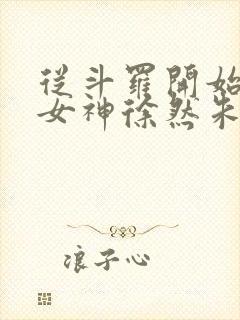 從斗羅開始
女神徐然朱
浪子心